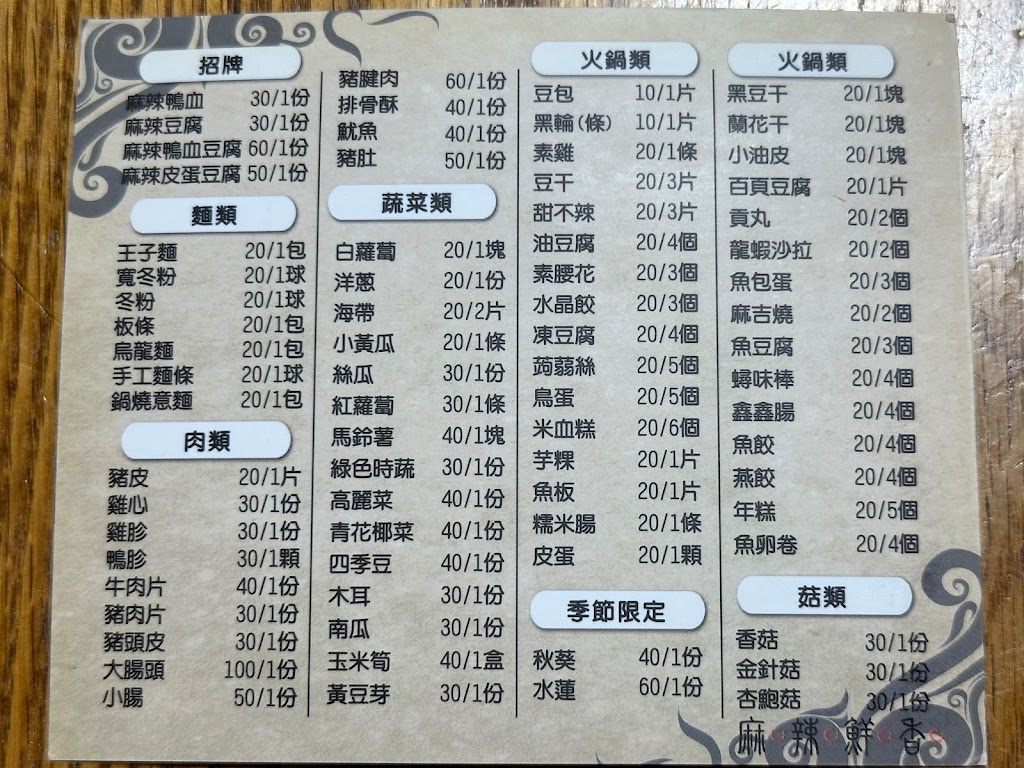 招牌
麻辣鴨血 30/1份
麻辣豆腐 30/1份
麻辣鴨血豆腐 60/1份
麻辣皮蛋豆腐 50/1份
麵類
王子麵 20/1包
寬冬粉 20/1球
冬粉 20/1球
板條 20/1包
烏龍麵 20/1包
手工麵條 20/1球
鍋燒意麵 20/1包
肉類
豬皮 20/1片
雞心 30/1份
雞胗 30/1份
鴨胗 30/1顆
牛肉片 40/1份
豬肉片 30/1份
豬頭皮 30/1份
大腸頭 100/1份
小腸 50/1份
豬腱肉 60/1份
排骨酥 40/1份
魷魚 40/1份
豬肚 50/1份
蔬菜類
白蘿蔔 20/1塊
洋蔥 20/1份
海帶 20/2片
小黃瓜 20/1條
絲瓜 30/1份
紅蘿蔔 30/1條
馬鈴薯 40/1塊
綠色時蔬 30/1份
高麗菜 40/1份
青花椰菜 40/1份
四季豆 40/1份
木耳 30/1份
南瓜 30/1份
玉米筍 40/1盒
黃豆芽 30/1份
火鍋類
豆包 10/1片
黑輪(條) 10/1片
素雞 20/1條
豆干 20/3片
甜不辣 20/3片
油豆腐 20/4個
素腰花 20/3個
水晶餃 20/3個
凍豆腐 20/4個
蒟蒻絲 20/5個
鳥蛋 20/5個
米血糕 20/6個
芋粿 20/1片
魚板 20/1片
糯米腸 20/1條
皮蛋 20/1顆
季節限定
秋葵 40/1份
水蓮 60/1份
火鍋類
黑豆干 20/1塊
蘭花干 20/1塊
小油皮 20/1塊
百頁豆腐 20/1片
貢丸 20/2個
龍蝦沙拉 20/2個
魚包蛋 20/3個
麻吉燒 20/2個
魚豆腐 20/3個
蟳味棒 20/4個
鑫鑫腸 20/4個
魚餃 20/4個
燕餃 20/4個
年糕 20/5個
魚卵卷 20/4個
菇類
香菇 30/1份
金針菇 30/1份
杏鮑菇 30/1份
麻辣鮮香